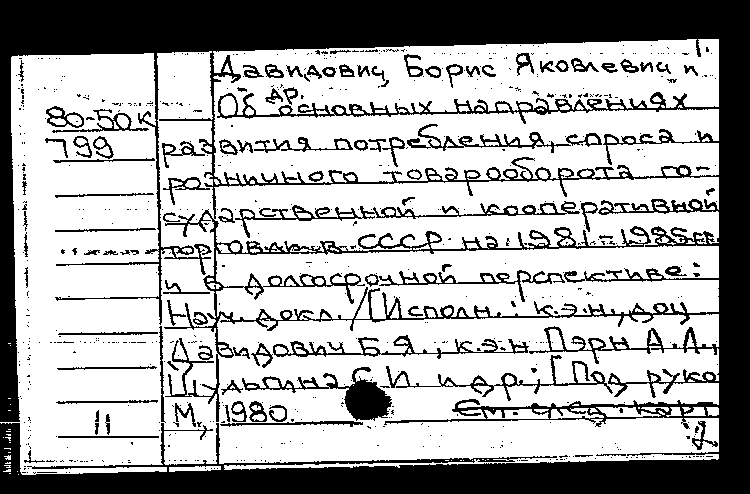 1.
Давидович, Борис Яковлевич и др.
80-50к
799
Об основных направлениях
развития потребления, спроса и
розничного товарооборота го-
сударственной и кооперативной
торговли в СССР на 1981-1985 гг.
и в долгосрочной перспективе:
Науч. докл. / [Исполн.: к.э.н., доц
Давидович Б.Я., к.э.н Пэрн А.Л.,
Шульпина С.И. и др.; [Под руко
11
М., 1980.
См. след. карт
2